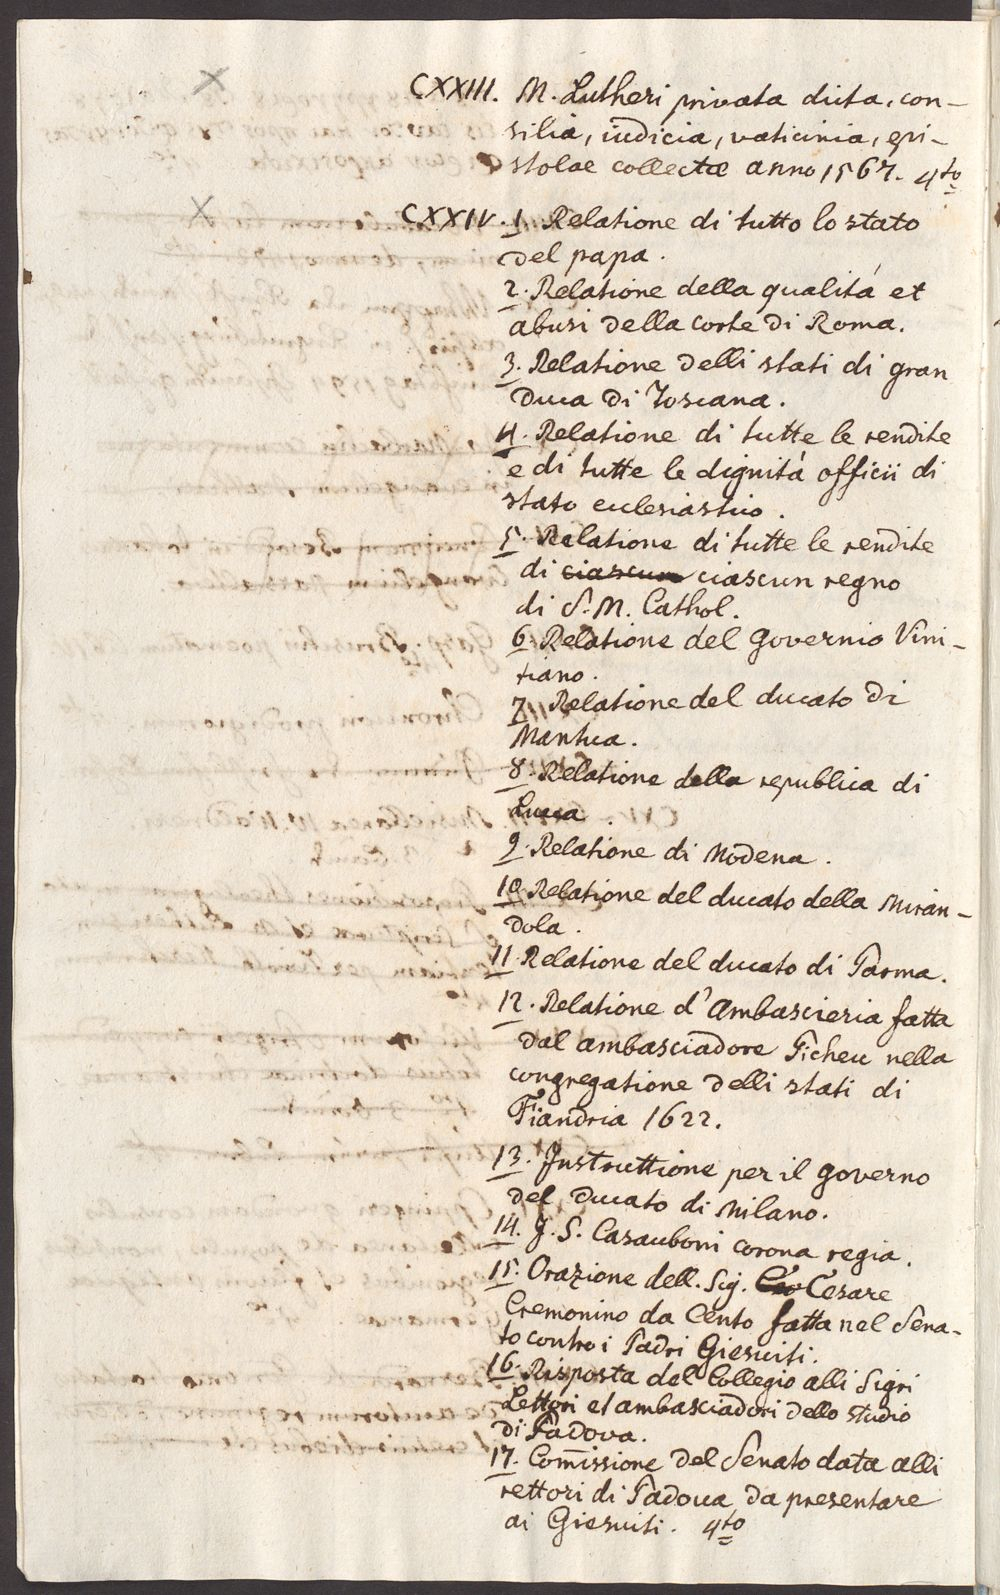 CXXIII. M. Lutheri privata dicta, con-
silia, iudicia, vaticinia, epi-
stolae collectae anno 1567. 4to
CXXIV. 1. Relatione di tutto lo stato
del papa.
2. Relatione della qualitá et
abusi della corte di Roma.
3. Relatione delli stati di gran
Duca di Toscana.
4. Relatione di tutte le rendite
e di tutte le dignitá officii di
stato ecclesiastico.
5. Relatione di tutte le rendite
di ciascun ciascun regno
di S. M. Cathol.
6. Relatione del Governio Vini-
tiano.
7. Relatione del ducato di
Mantua.
8. Relatione della republica di
Lucca.
9. Relatione di Modena.
10. Relatione del ducato della Miran-
dola.
11. Relatione del ducato di Parma.
12. Relatione d'Ambascieria fatta
dal ambasciadore Picheu nella
congregatione delli stati di
Fiandria 1622.
13. Instruttione per il governo
del Ducato di Milano.
14. J. S. Casauboni corona regia.
15. Orazione dell. Sig. Cesare
Cremonino da Cento fatta nel Sena-
to contro i Padri Giesuiti.
16. Risposta del Collegio alli Sigri
Lettori et ambasciadori dello studio
di Padova.
17. Com̃issione del Senato data alli
rettori di Padoua da presentare
ai Giesuiti. 4to